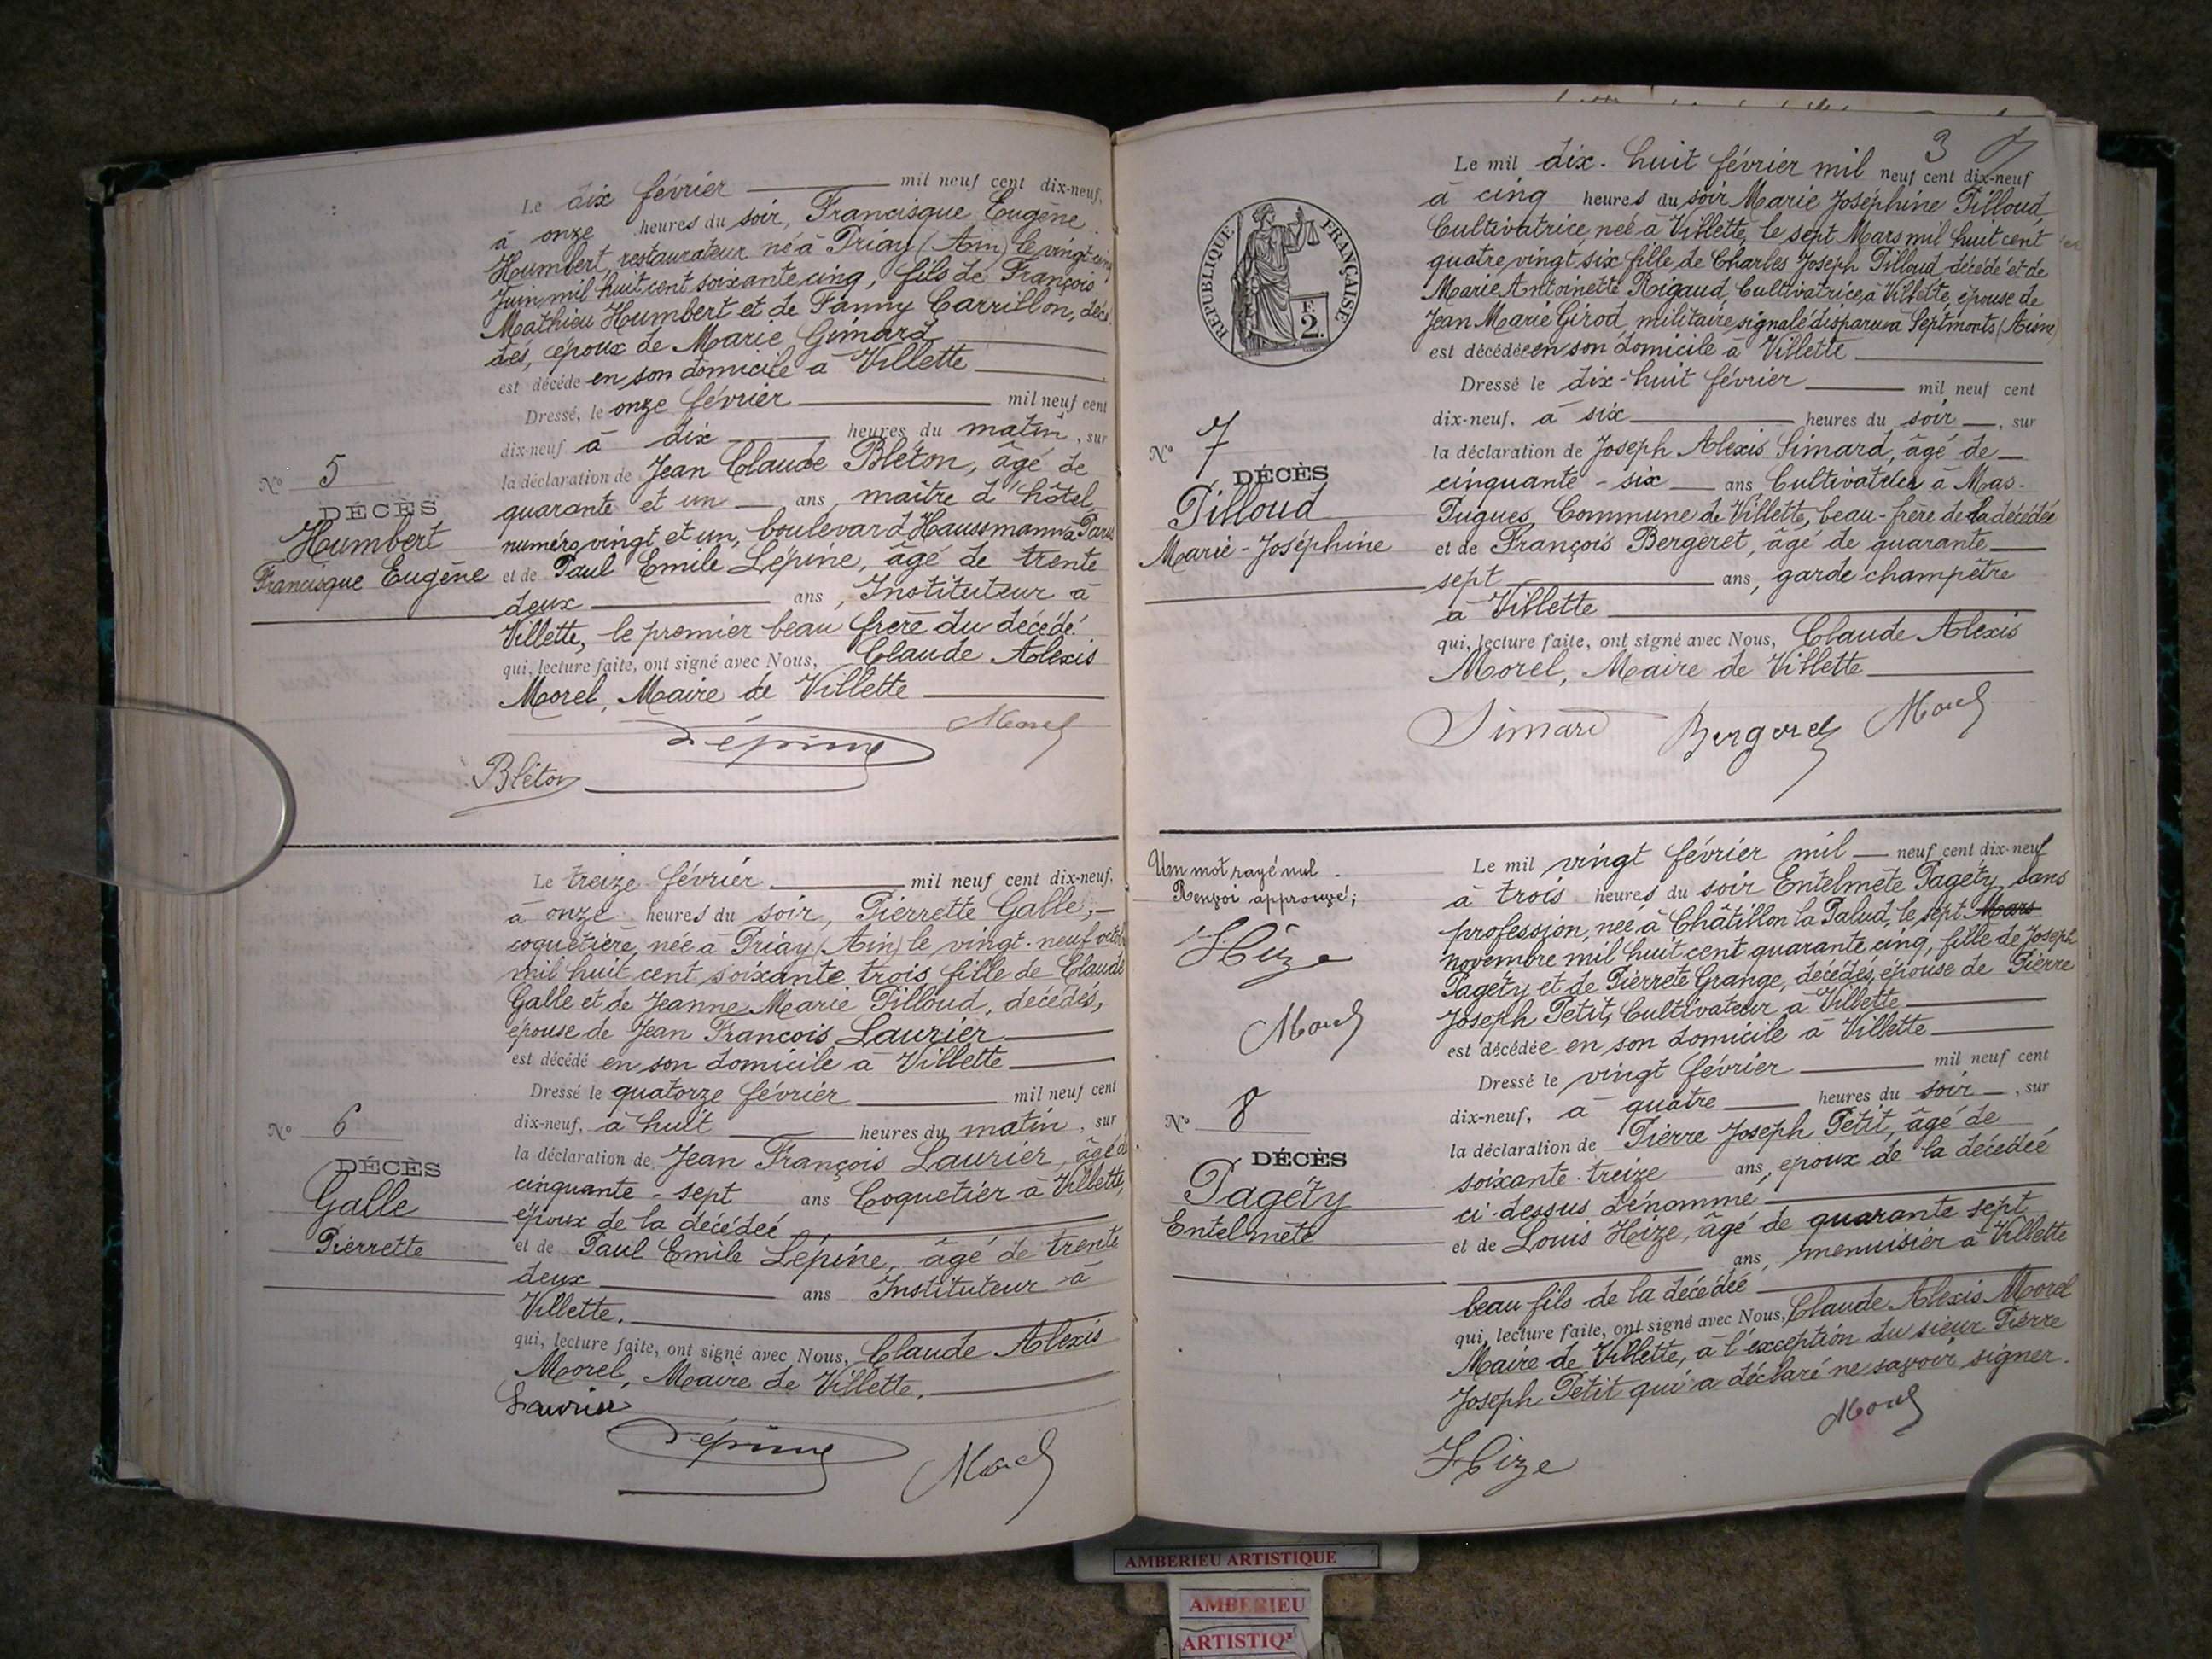 Le dix février mil neuf cent dix-neuf,
à onze heures du soir, Francisque Eugène
Humbert, restaurateur né à Priay (Ain) le vingt-cinq
Juin mil huit cent soixante cinq, fils de François
Mathieu Humbert et de Fanny Carrillon, décé
dés, époux de Marie Gimard
est décédé en son domicile à Villette
Dressé, le onze février mil neuf cent
dix-neuf à dix heures du matin, sur
la déclaration de Jean Claude Bléton, âgé de
quarante et un ans, maître d'hôtel,
numéro vingt et un, boulevard Haussmann à Paris
et de Paul Emile Lépine, âgé de trente
deux ans, Instituteur à
Villette, le premier beau frère du décédé.
qui, lecture faite, ont signé avec Nous, Claude Alexis
Morel, Maire de Villette
Lépine Morel
Bléton
N° 5
DÉCÈS
Humbert
Francisque Eugène
Le treize février mil neuf cent dix-neuf,
à onze heures du soir, Pierrette Galle,
coquetière, née à Priay (Ain) le vingt-neuf octob
mil huit cent soixante trois fille de Claude
Galle et de Jeanne Marie Pilloud, décédés,
épouse de Jean François Laurier
est décédé en son domicile à Villette
Dressé le quatorze février mil neuf cent
dix-neuf, à huit heures du matin, sur
la déclaration de Jean François Laurier, âgé de
cinquante-sept ans Coquetier à Villette,
époux de la décédée
et de Paul Emile Lépine, âgé de trente
deux ans Instituteur à
Villette.
qui, lecture faite, ont signé avec Nous, Claude Alexis
Morel, Maire de Villette.
Laurier
Lépine Morel
N° 6
DÉCÈS
Galle
Pierrette
3
Le mil dix-huit février mil neuf cent dix-neuf
à cinq heures du soir Marie Joséphine Pilloud
Cultivatrice, née à Villette, le sept Mars mil huit cent
quatre vingt six fille de Charles Joseph Pilloud décédé et de
Marie Antoinette Rigaud, Cultivatrice à Villette, épouse de
Jean Marie Girod, militaire signalé disparu à Septmonts (Aisne)
est décédée en son domicile à Villette
Dressé le dix-huit février mil neuf cent
dix-neuf, à six heures du soir, sur
la déclaration de Joseph Alexis Simard, âgé de
cinquante-six ans Cultivateur à Mas-
Pugues, Commune de Villette, beau-frère de la décédée
et de François Bergeret, âgé de quarante
sept ans, garde champêtre
à Villette
qui, lecture faite, ont signé avec Nous, Claude Alexis
Morel, Maire de Villette
Simard Bergeret Morel
RÉPUBLIQUE FRANÇAISE
F.
2
N° 7
DÉCÈS
Pilloud
Marie-Joséphine
Le mil vingt février mil neuf cent dix-neuf
à trois heures du soir Entelmète Pagéty, sans
profession, née à Châtillon la Palud, le sept Mars
novembre mil huit cent quarante cinq, fille de Joseph
Pagéty et de Pierrete Grange, décédés, épouse de Pierre
Joseph Petit, Cultivateur à Villette
est décédée en son domicile à Villette
Dressé le vingt février mil neuf cent
dix-neuf, à quatre heures du soir, sur
la déclaration de Pierre Joseph Petit, âgé de
soixante-treize ans, époux de la décédée
ci-dessus dénommé
et de Louis Hize, âgé de quarante sept
ans, menuisier à Villette
beau fils de la décédée
qui, lecture faite, ont signé avec Nous, Claude Alexis Morel
Maire de Villette, à l'exception du sieur Pierre
Joseph Petit qui a déclaré ne savoir signer.
Morel
Hize
Un mot rayé nul.
Renvoi approuvé;
Hize
Morel
N° 8
DÉCÈS
Pagéty
Entelmète
AMBERIEU ARTISTIQUE
AMBERIEU
ARTISTIQ